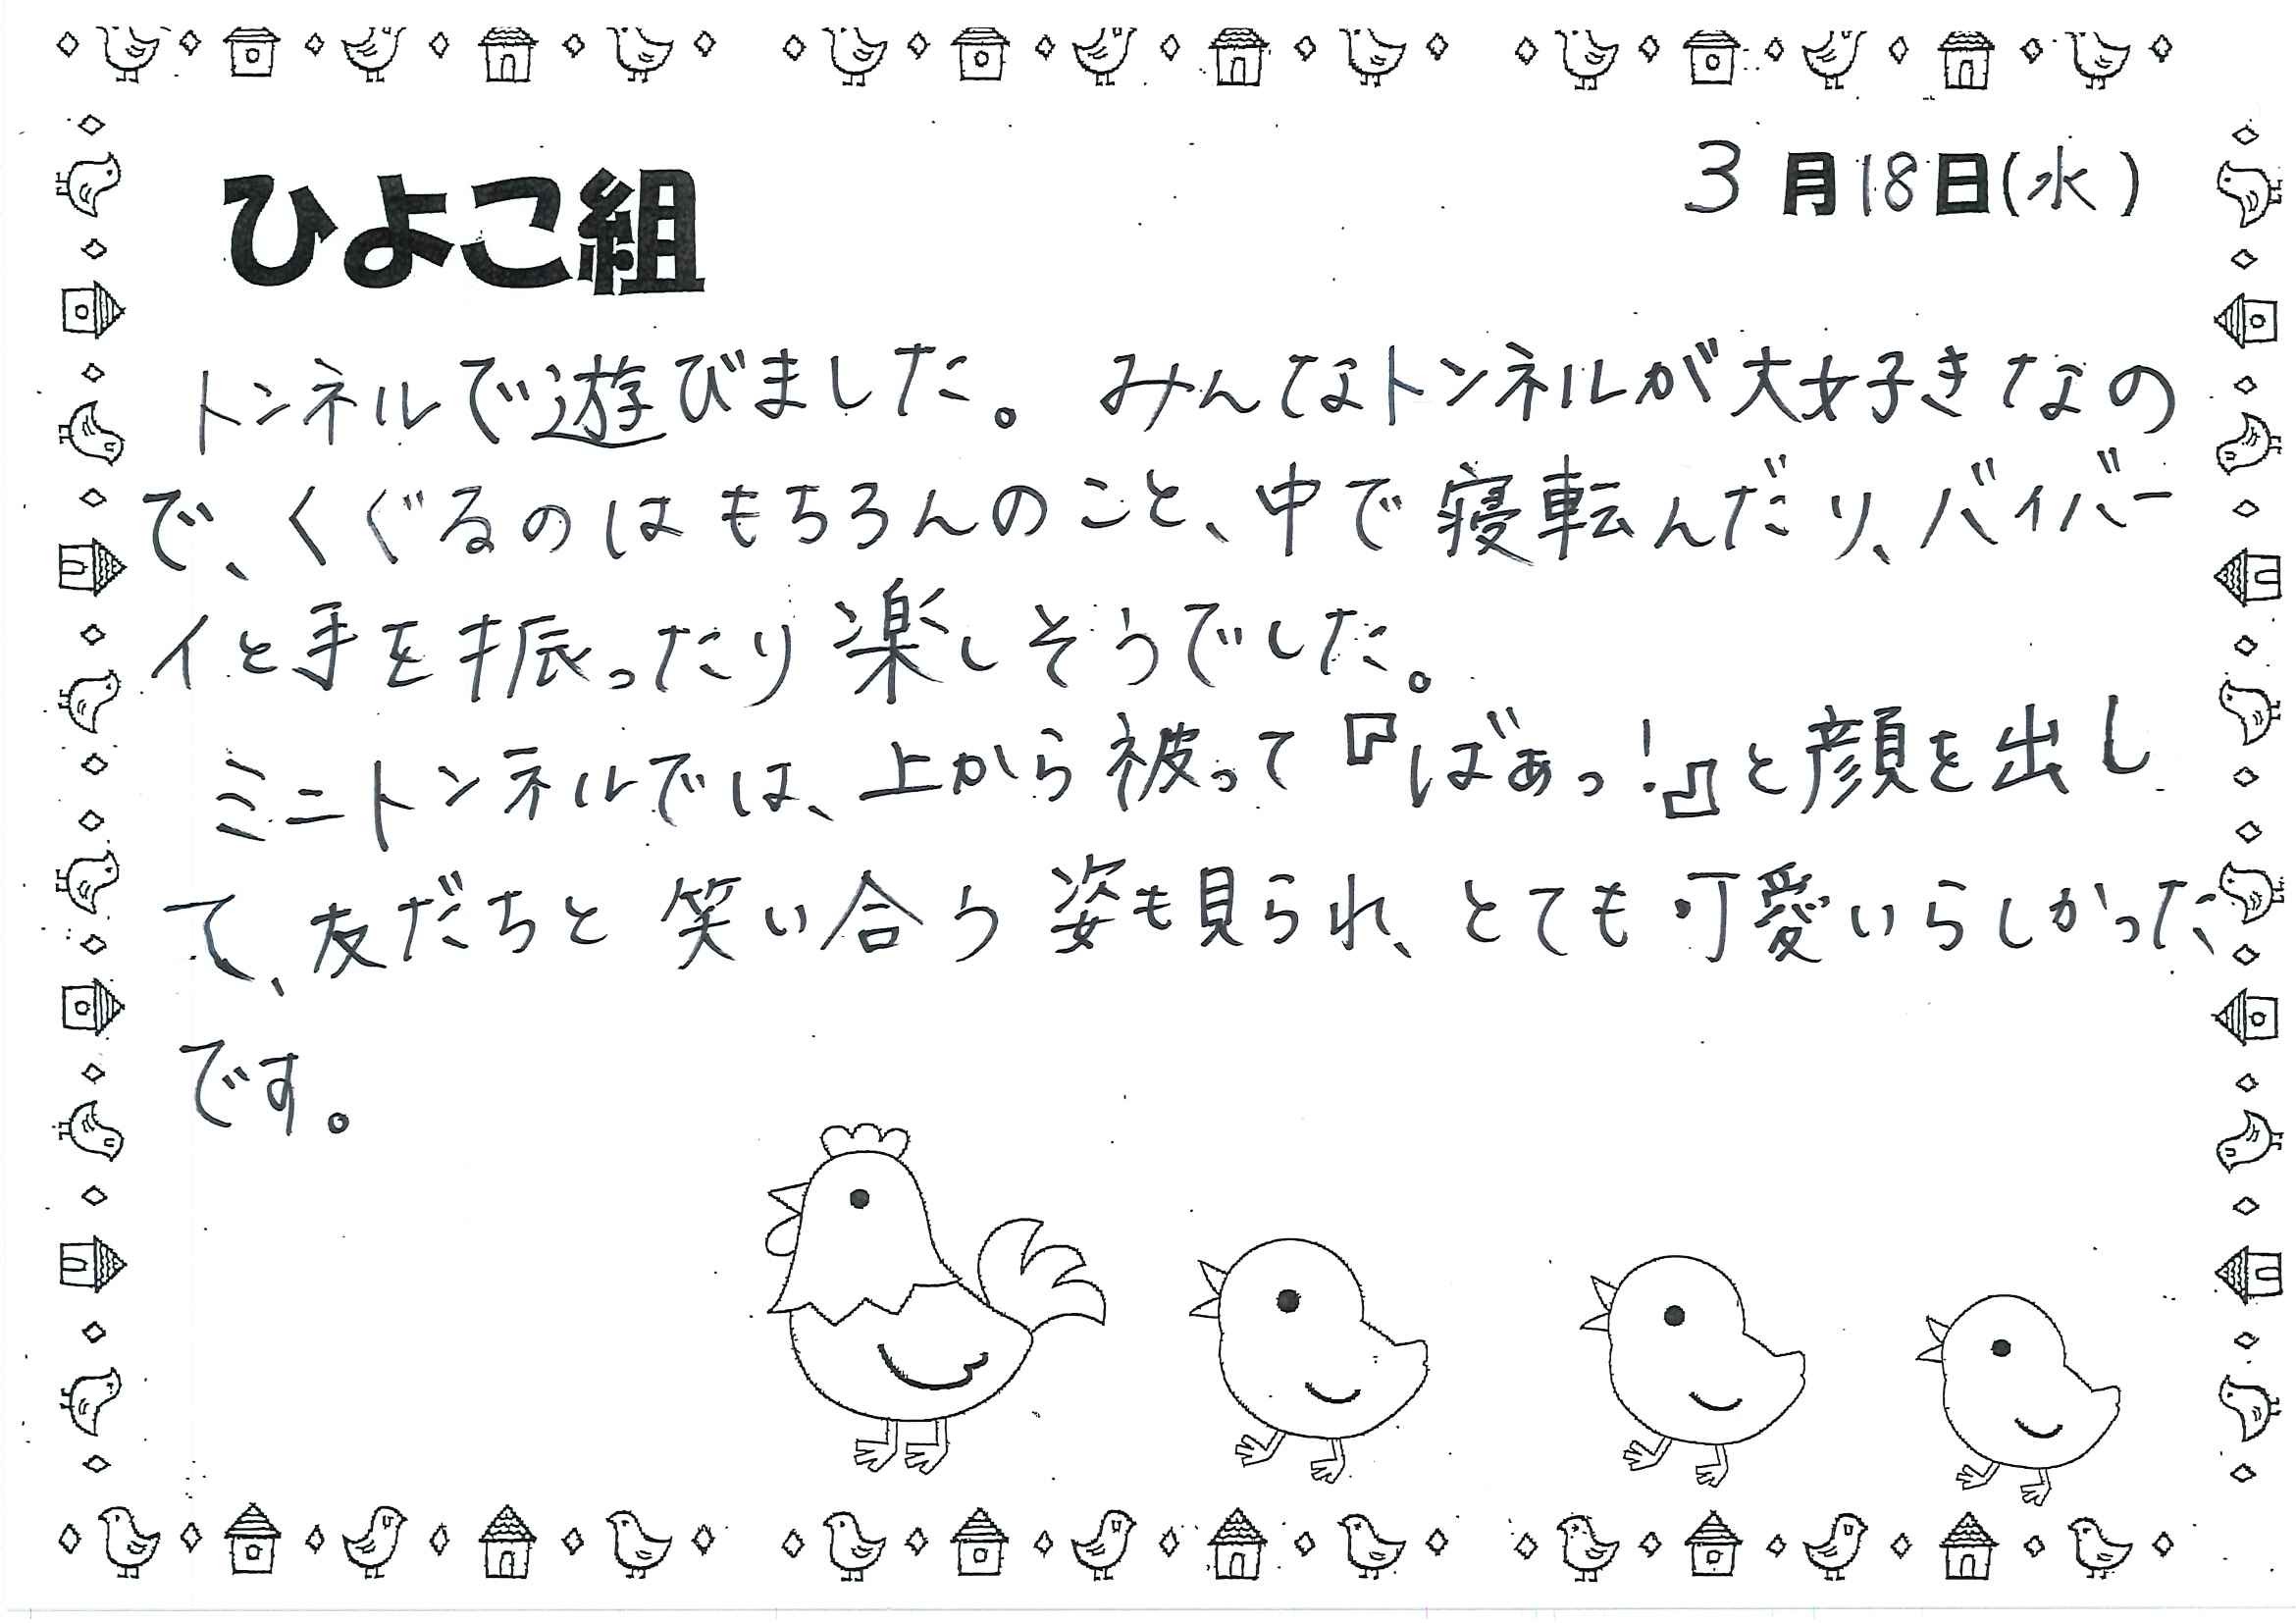 3月18日(水)
ひよこ組
トンネルで遊びました。みんなトンネルが大好きなの
で、くぐるのはもちろんのこと、中で寝転んだり、バイバー
イと手を振ったり楽しそうでした。
ミニトンネルでは、上から被って『ばぁっ!』と顔を出し
て、友だちと笑い合う姿も見られ、とても可愛いらしかった
です。